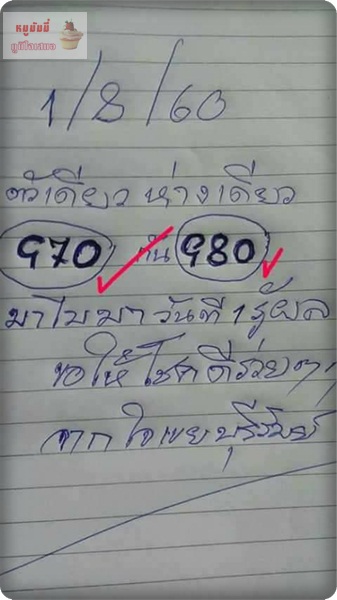 หนูขันตี้
1/8/60
ตัวเดียว ห่างเดียว
970 กัน 980
มาไม่มา วันที่ 1 รู้ผล
ขอให้โชคดีร่วยๆ
จากใจเขยบุรีรัมย์